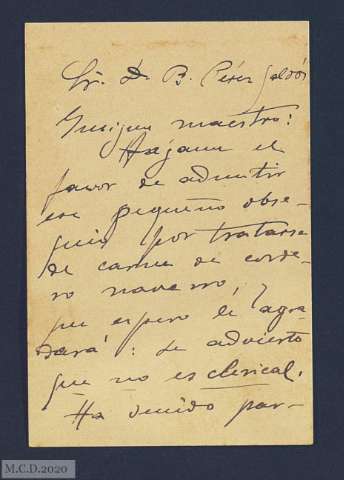 Sr. D. B. Pérez Galdós
Insigne maestro:
Hágame el
favor de admitir
ese pequeño obse-
quio por tratarse
de carne de corde-
ro navarro, y
que espero le agra
dará: le advierto
que no es clerical.
Ha venido par-
M.C.D.2020